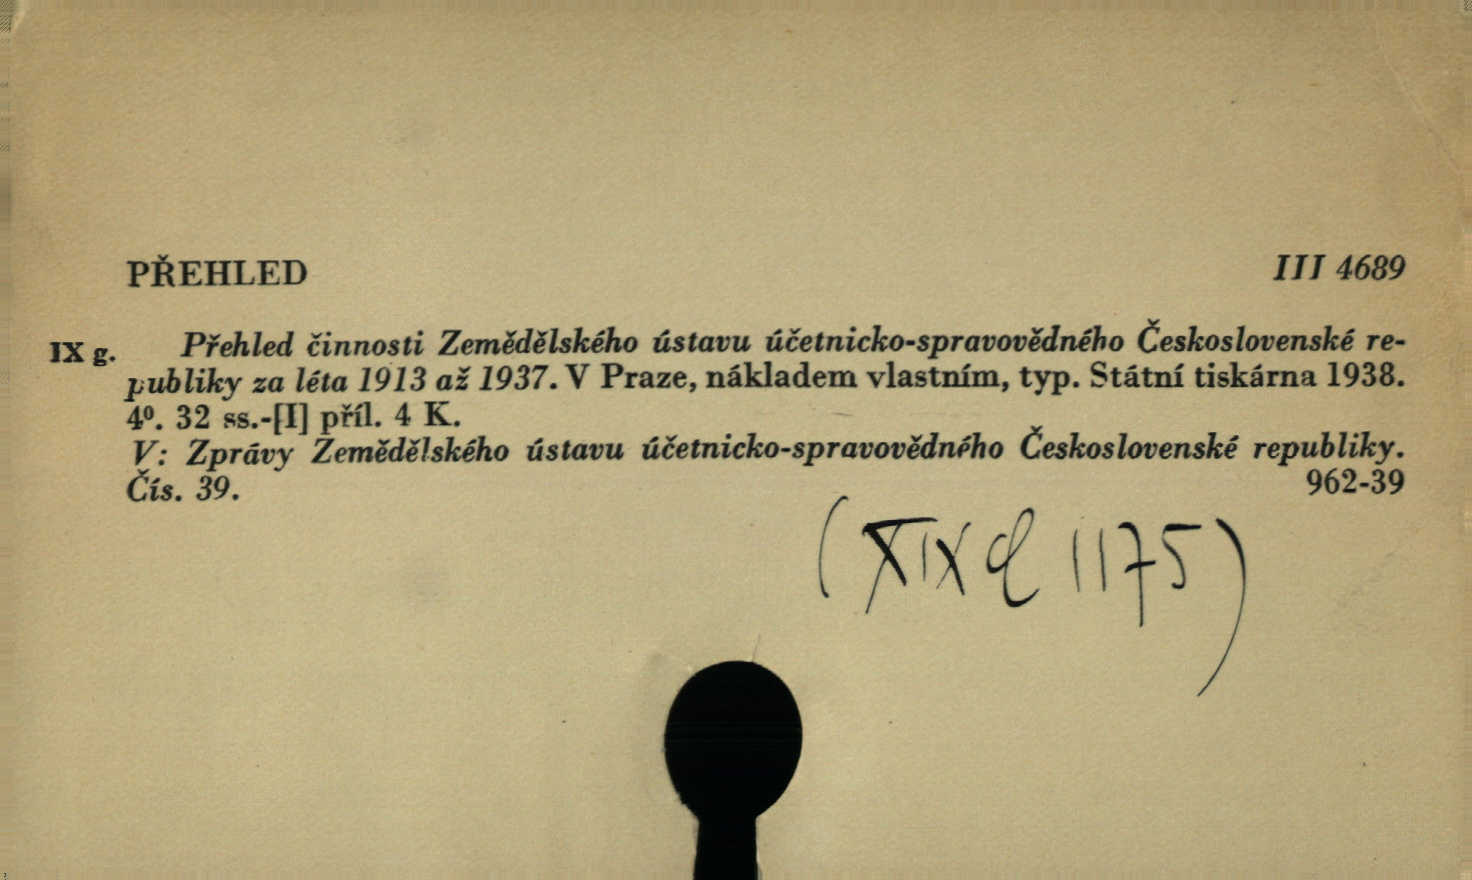 PŘEHLED III 4689
IX g. Přehled činnosti Zemědělského ústavu účetnicko-spravovědného Československé re-
publiky za léta 1913 až 1937. V Praze, nákladem vlastním, typ. Státní tiskárna 1938.
4⁰. 32 ss.-[I] příl. 4 K.
V: Zprávy Zemědělského ústavu účetnicko-spravovědného Československé republiky.
Čís. 39. 962-39
(XIX 1175)